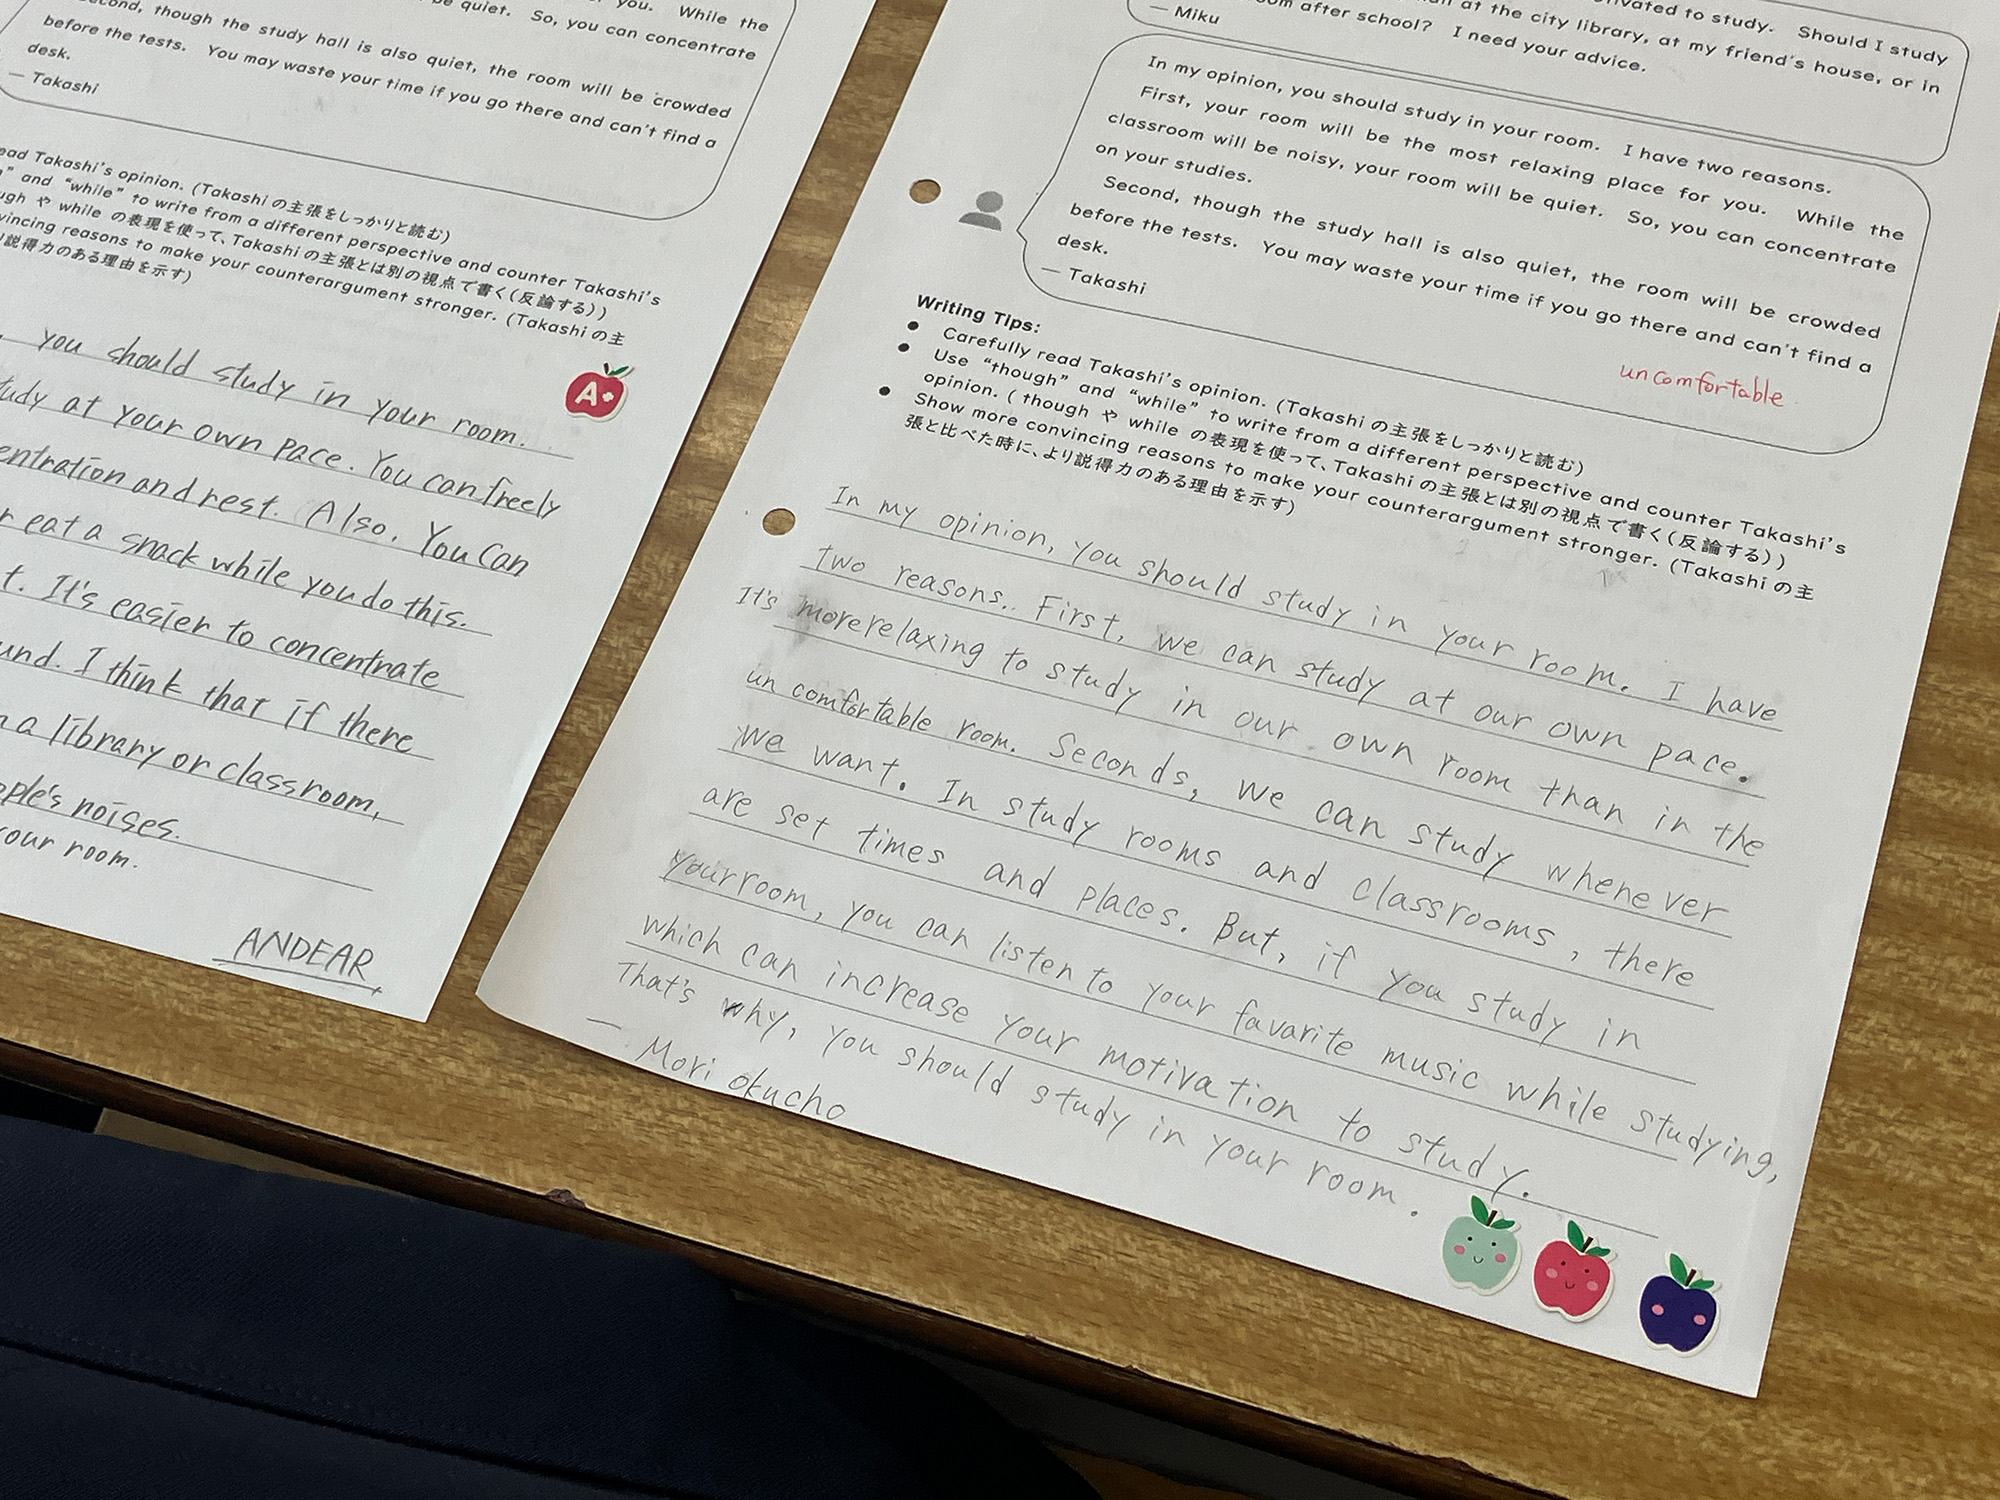 you. While the
be quiet. So, you can concentrate
though the study hall is also quiet, the room will be crowded
before the tests. You may waste your time if you go there and can't find a
desk.
— Takashi
read Takashi's opinion. (Takashi の主張をしっかりと読む)
and "while" to write from a different perspective and counter Takashi's
や while の表現を使って、Takashi の主張とは別の視点で書く(反論する))
reasons to make your counterargument stronger. (Takashi の主
説得力のある理由を示す)
you should study in your room.
at your own pace. You can freely
and rest. Also. You Can
eat a snack while you do this.
It's easier to concentrate
I think that if there
a library or classroom,
noises.
your room.
A+
ANDEAR
to study. Should I study
at the city library, at my friend's house, or in
after school? I need your advice.
— Miku
In my opinion, you should study in your room. I have two reasons.
First, your room will be the most relaxing place for you. While the
classroom will be noisy, your room will be quiet. So, you can concentrate
on your studies.
Second, though the study hall is also quiet, the room will be crowded
before the tests. You may waste your time if you go there and can't find a
desk.
— Takashi
uncomfortable
Writing Tips:
● Carefully read Takashi's opinion. (Takashi の主張をしっかりと読む)
● Use "though" and "while" to write from a different perspective and counter Takashi's
opinion. ( though や while の表現を使って、Takashi の主張とは別の視点で書く(反論する))
● Show more convincing reasons to make your counterargument stronger. (Takashi の主
張と比べた時に、より説得力のある理由を示す)
In my opinion, you should study in your room. I have
two reasons. First, we can study at our own pace.
It's more relaxing to study in our own room than in the
uncomfortable room. Seconds, we can study whenever
we want. In study rooms and classrooms, there
are set times and places. But, if you study in
your room, you can listen to your favarite music while studying,
which can increase your motivation to study.
That's why, you should study in your room.
— Mori okucho